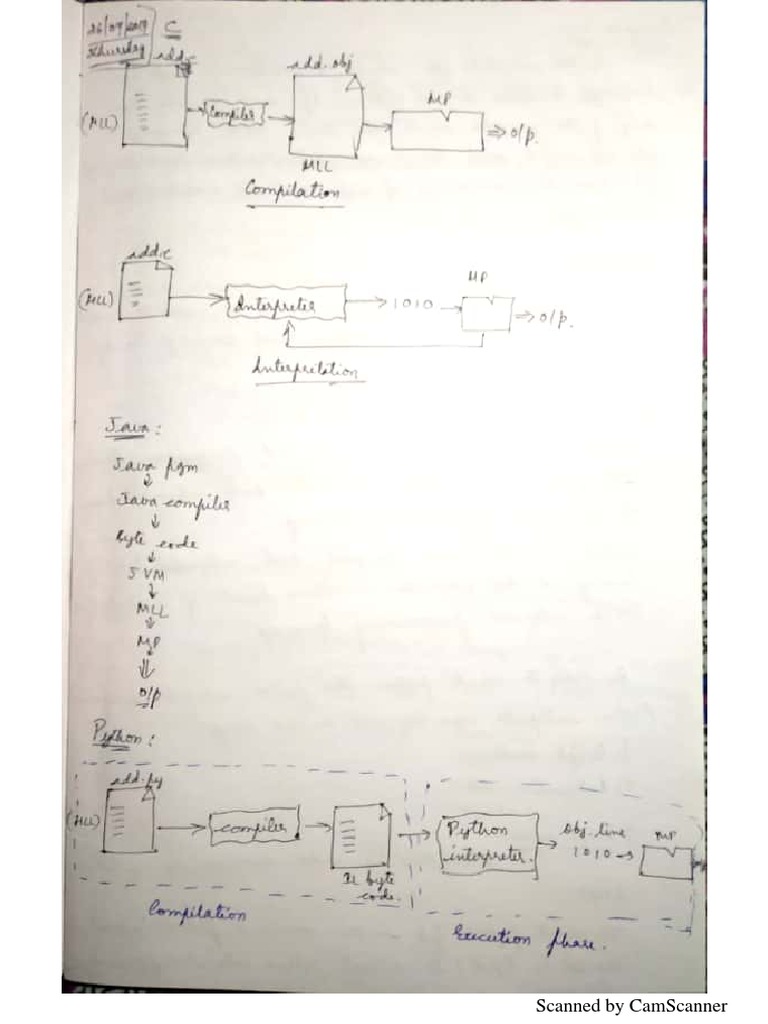 C
Thursday
add.c
add.obj
(HLL)
Compiler
MP
⇒ o/p.
MLL
Compilation
add.c
(HLL)
Interpreter
1010
MP
⇒ o/p.
Interpretation
Java:
Java pgm
Java compiler
byte code
JVM
MLL
MP
o/p
Python:
add.py
(HLL)
compiler
byte
code.
Python
interpreter.
Obj. line
1010
MP
Compilation
Execution phase.
Scanned by CamScanner